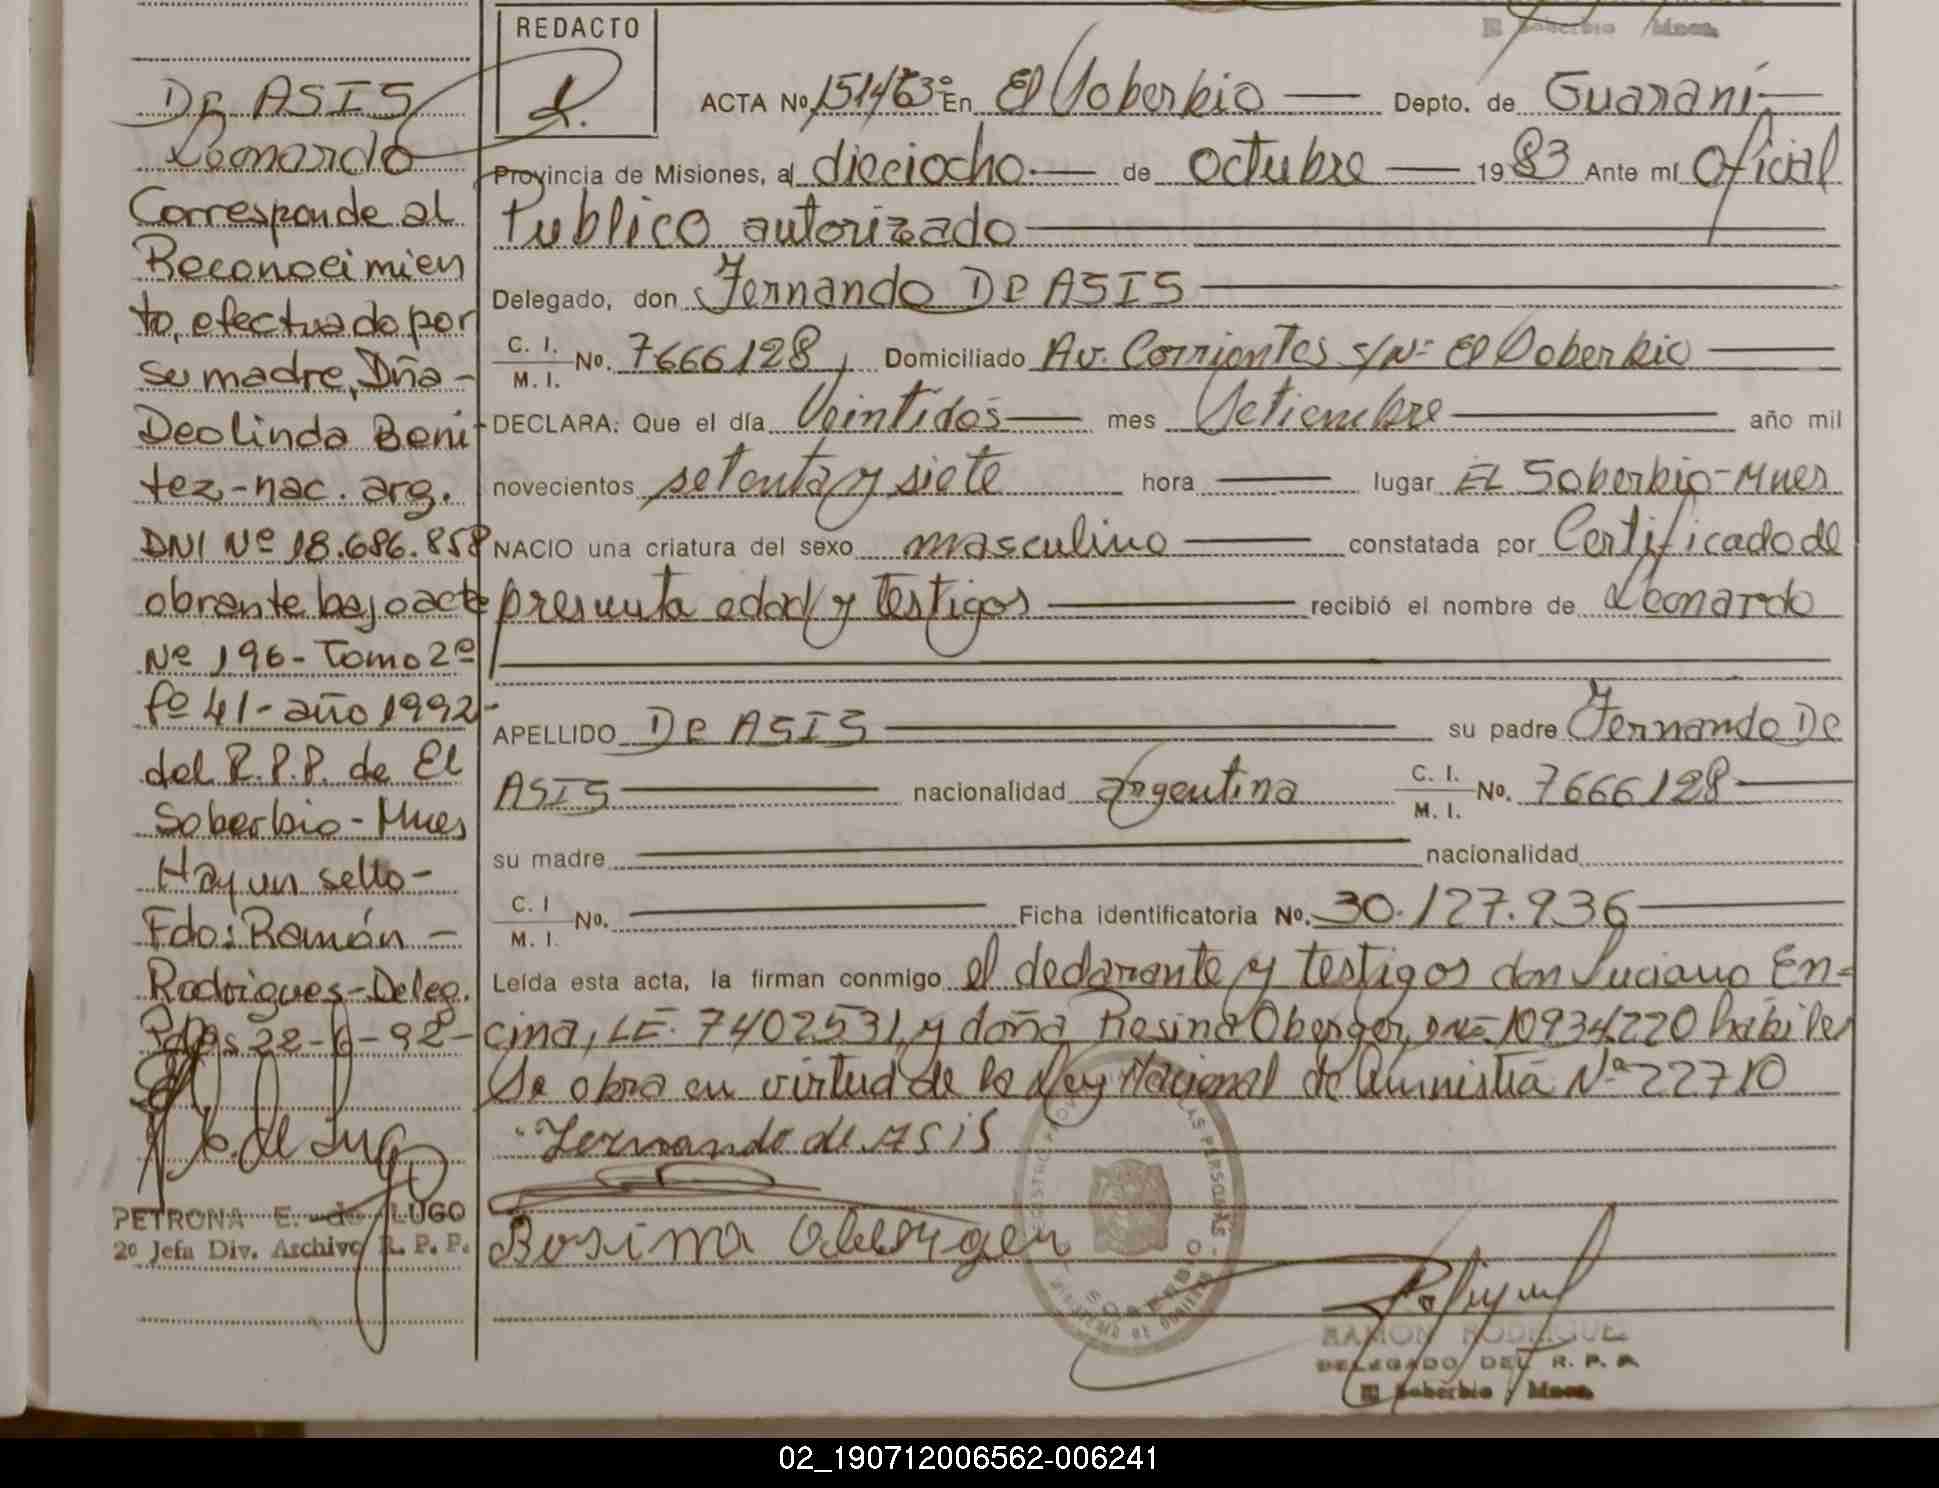 El Soberbio Mnes.
REDACTO
DE ASIS
Leonardo
Corresponde al
Reconocimien
to, efectuado por
su madre, Dña-
Deolinda Beni
tez-nac. arg.
DNI Nº 18.686.858
obrante bajo acta
Nº 196- Tomo 2º
fº 41- año 1992-
del R.P.P. de El
Soberbio- Mnes
Hay un sello-
Fdo: Ramón -
Rodrigues- Deleg.
Pdas 22-6-92-
PETRONA E. de LUGO
2º Jefa Div. Archivo R. P. P.
ACTA No. 151/63º En El Soberbio Depto. de Guaraní
Provincia de Misiones, a dieciocho de octubre 1983 Ante mí Oficial
Publico autorizado
Delegado, don Fernando DE ASIS
C. I. / M. I. No. 7666128, Domiciliado Av. Corrientes s/Nº El Soberbio
DECLARA: Que el día Veintidos mes Setiembre año mil
novecientos setenta y siete hora lugar EL Soberbio-Mnes
NACIO una criatura del sexo masculino constatada por Certificado de
presunta edad y testigos recibió el nombre de Leonardo
APELLIDO DE ASIS su padre Fernando DE
ASIS nacionalidad argentina C. I. / M. I. No. 7666128
su madre nacionalidad
C. I. / M. I. No. Ficha identificatoria No. 30.127.936
Leída esta acta, la firman conmigo el declarante y testigos don Luciano En-
cina, LE. 7402531, y doña Rosina Oberger, DNI- 10934220 hábiles
Se obra en virtud de la Ley Nacional de Amnistía Nº 22710
Fernando de ASIS
RAMON RODRIGUEZ
DELEGADO DEL R. P. P.
El Soberbio Mnes.
02_190712006562-006241